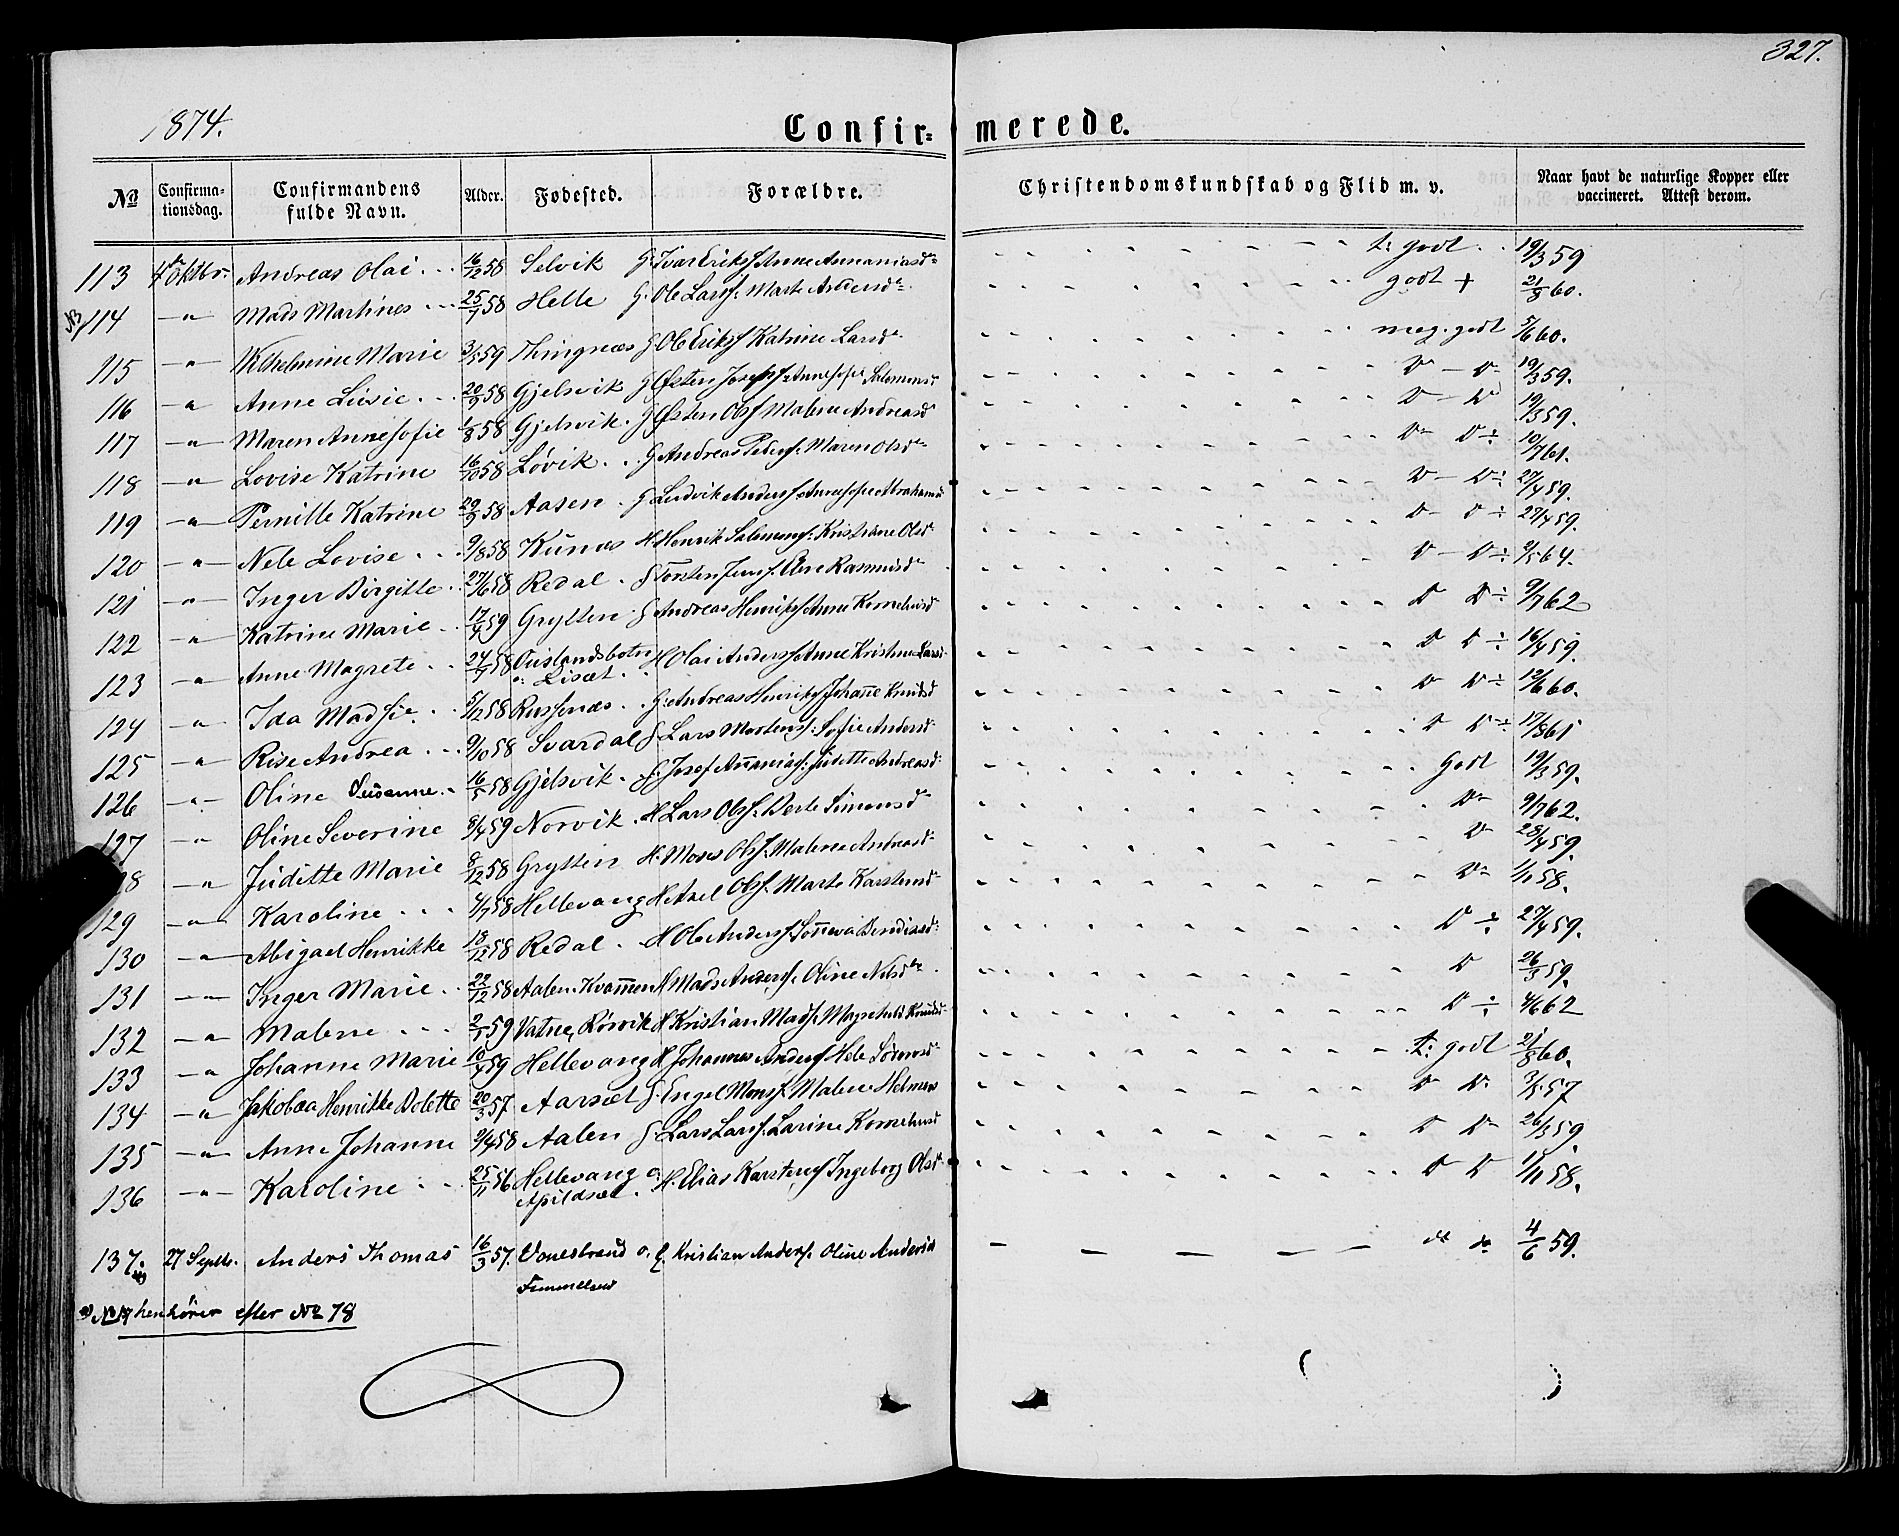 327.
1874.
Confir= merede.
No Confirma-tionsdag. Confirmandens fulde Navn. Alder. Fødested. Forældre. Christendomskundskab og Flid m. v. Naar havt de naturlige Kopper eller vaccineret. Attest derom.
113 4de Oktbr. Andreas Olai 16/12 58 Selvik G: Ivar Eriks. Anne Annaniasdr t: godt 19/3 59
NB 114 -"- Mads Martines 25/7 58 Helle G: Ole Larss. Marte Andersdr godt + 21/8 60.
115 -"- Wilhelmine Marie 3/5 59 Thingnæs G Ole Eriks Katrine Larsdr meg. godt 5/6 60.
116 -"- Anne Lovise 20/9 58 Gjelsvik G Østen Josefs Anne Sofie Salomonsd D - D 19/3 59.
117 -"- Maren Anne Sofie 1/8 58 Gjelsvik G Østen Ols Malene Andreasd D - D 19/3 59.
118 -"- Lovise Katrine 16/10 58 Løvik G Andreas Peders. Maren Olsdr D D ÷ 10/7 61.
119 -"- Pernille Katrine 29/9 58 Aasen G Ludvik Anders Anne Sofie Abrahamsd D - D ÷ 27/4 59.
120 -"- Nele Lovise 9/8 58 Kunæs H. Henrik Salomons. Kristiane Olsd D - D ÷ 27/4 59.
121 -"- Inger Birgitte 27/6 58 Redal G Torsten Jens. Elere Rasmusdr D - D ÷ 2/5 64.
122 -"- Katrine Marie 17/4 59 Grytten G Andreas Henriks Anne Korneliusd D D ÷ 9/7 62
123 -"- Anne Magrete 24/9 58 H Olai Anders Anne Kristine Larsd D D ÷ 16/4 59.
o: Lisæt
124 -"- Ida Madsie 5/12 58 Russenæs G: Andreas Henriks Johanne Knudsd D D ÷ 12/6 60.
125 -"- Rise Andrea 9/10 58 Svardal G Lars Mortens: Sofie Andersd D D ÷ 17/8 61
126 -"- Oline Susanne 16/5 58 Gjelsvik G: Josef Annanias. Juditte Andreasd Godt 19/3 59.
127 -"- Oline Severine 8/4 59 Norvik H Lars Ols. Berte Simonsdr D 9/7 62.
128 -"- Juditte Marie 8/12 58 Grytten H. Moses Ols. Malene Andreasd D 28/4 59.
129 -"- Karoline 4/7 58 Hellevang H Axel Ols. Marte Karstensd D 1/11 58.
130 -"- Abigael Henrikke 18/12 58 Redal H Ole Anders. Sønneva Bendiksd D ÷ 27/4 59.
131 -"- Inger Marie 22/12 58 Aalen. Kvammen H Mads Anders. Oline Nilsdr D 26/3 59.
132 -"- Malene 2/1 59 Vatne, Rørvik H Kristian Mads. Magrethild Knudsd D ÷ 4/6 62
133 -"- Johanne Marie 10/4 59 Hellevang H Johannes Anders Nele Simonsdr t: godt 21/8 60.
134 -"- Jakobæa Henrikke Bolette 20/3 57 Aarsæt G: Engel Mons. Malene Helmers D D 3/5 57
135 -"- Anne Johanne 9/4 58 Aalen G: Lars Lars. Larine Korneliusd D D 26/3 59.
136 -"- Karoline 25/11 56 Hellevang o: H. Elias Karstens Ingeborg Olsdr D D 1/11 58.
Apildsæt
137. 27 Septbr. Anders Thomas 16/3 57. Vonesbrand o. G. Kristian Anders. Oline Andersd do do 4/6 59.
henhører efter No 78